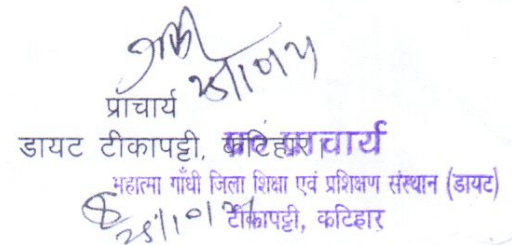 प्राचार्य
डायट टीकापट्टी, कटिहार
प्राचार्य
महात्मा गाँधी जिला शिक्षा एवं प्रशिक्षण संस्थान (डायट)
टीकापट्टी, कटिहार